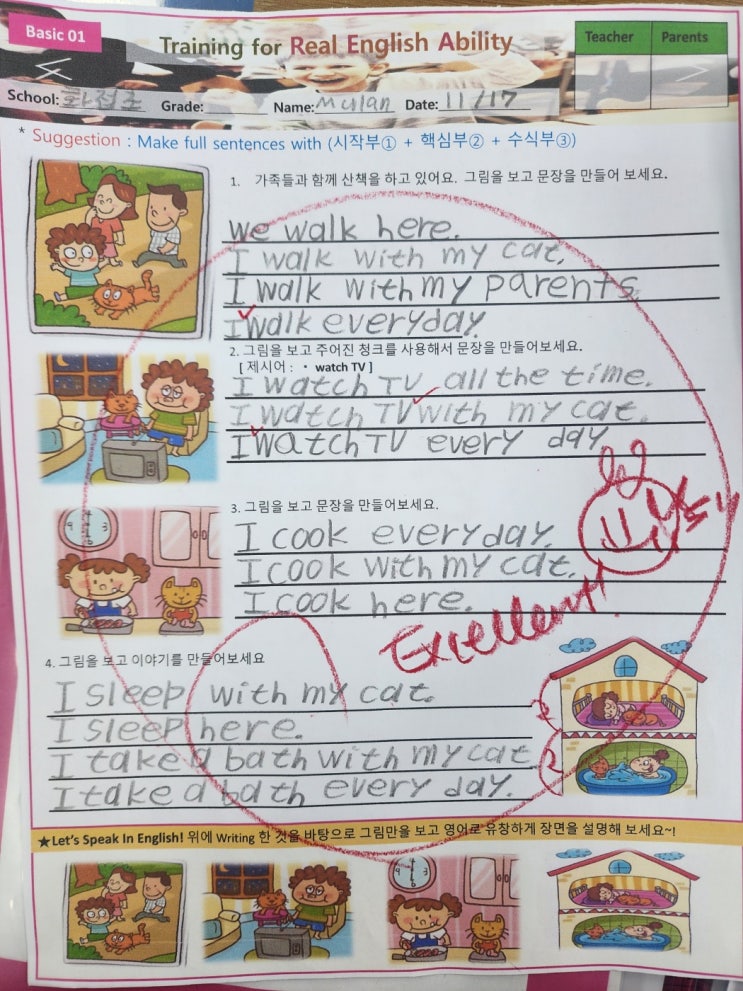 Basic 01
Training for Real English Ability
Teacher Parents
School: Grade: Name: Mulan Date: 11/17
* Suggestion : Make full sentences with (시작부① + 핵심부② + 수식부③)
1. 가족들과 함께 산책을 하고 있어요. 그림을 보고 문장을 만들어 보세요.
we walk here.
I walk with my cat.
I walk with my parents.
I walk everyday.
2. 그림을 보고 주어진 청크를 사용해서 문장을 만들어보세요.
[ 제시어 : • watch TV ]
I watch TV all the time.
I watch TV with my cat.
I watch TV every day
3. 그림을 보고 문장을 만들어보세요.
I cook everyday.
I cook with my cat.
I cook here.
Excellent!
4. 그림을 보고 이야기를 만들어보세요
I sleep with my cat.
I sleep here.
I take a bath with my cat
I take a bath every day.
★Let's Speak In English! 위에 Writing 한 것을 바탕으로 그림만을 보고 영어로 유창하게 장면을 설명해 보세요~!